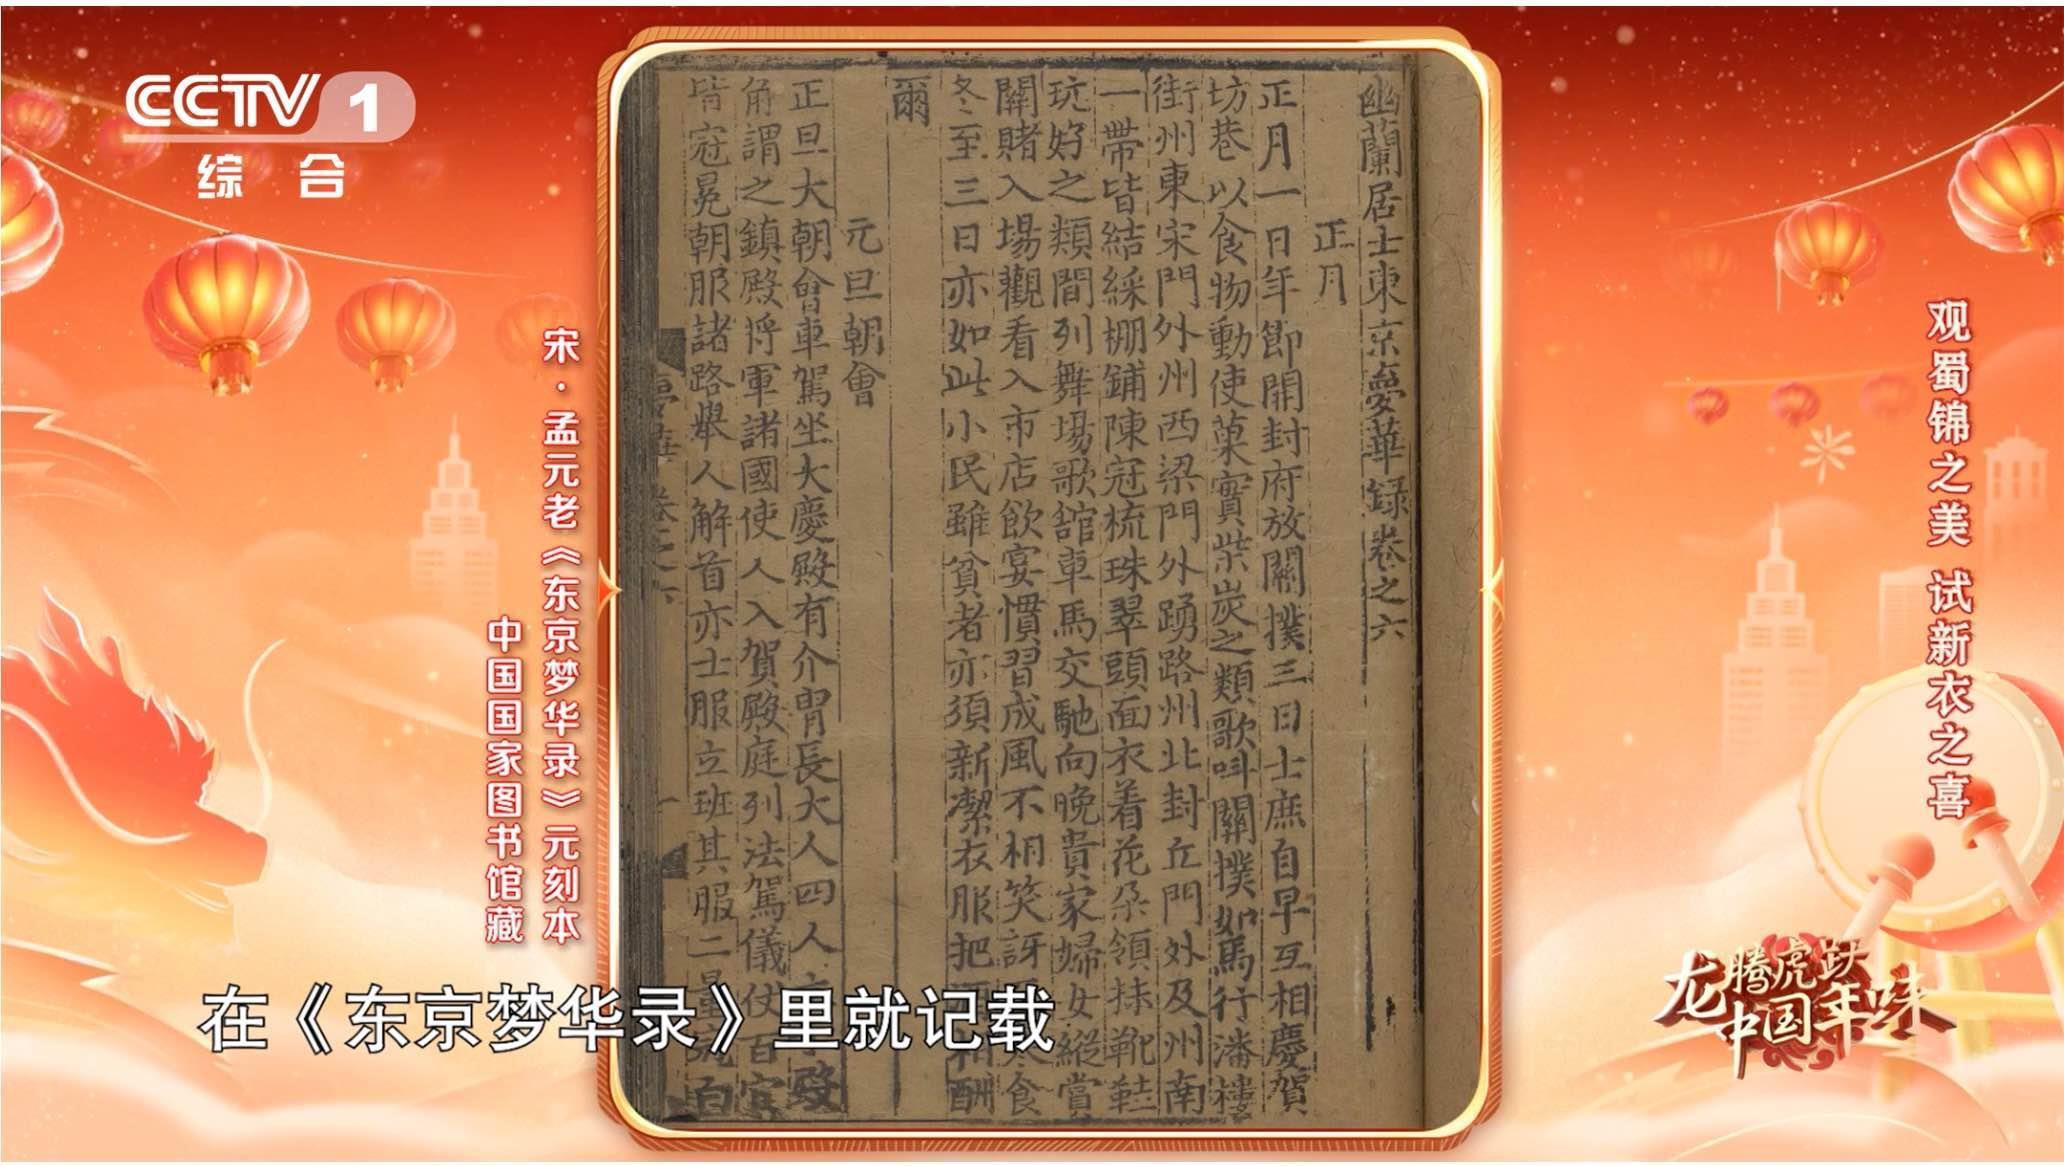 CCTV 1
综合
观蜀锦之美 试新衣之喜
幽蘭居士東京夢華録卷之六
正月
正月一日年節開封府放關撲三日士庶自早互相慶賀
坊巷以食物動使菓實柴炭之類歌叫關撲如馬行潘樓
街州東宋門外州西梁門外踴路州北封丘門外及州南
一帶皆結綵棚鋪陳冠梳珠翠頭面衣着花朶領抹靴鞋
玩好之類間列舞場歌舘車馬交馳向晚貴家婦女縱賞
關賭入場觀看入市店飲宴慣習成風不相笑訝 食
冬至三日亦如此小民雖貧者亦須新潔衣服把 酬
爾
元旦朝會
正旦大朝會車駕坐大慶殿有介胄長大人四人 殿
角謂之鎮殿將軍諸國使人入賀殿庭列法駕儀仗百官
皆冠冕朝服諸路舉人解首亦士服立班其服二量 白
宋·孟元老《东京梦华录》元刻本
中国国家图书馆藏
在《东京梦华录》里就记载
龙腾虎跃
中国年味